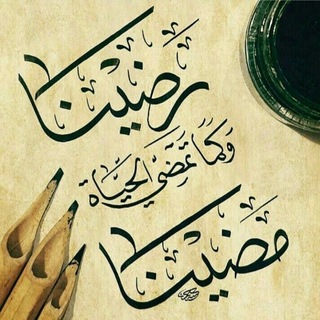 رَضِيْنَا
وَكَمَا تَمْضِي الْحَيَاة
مَضَيْنَا